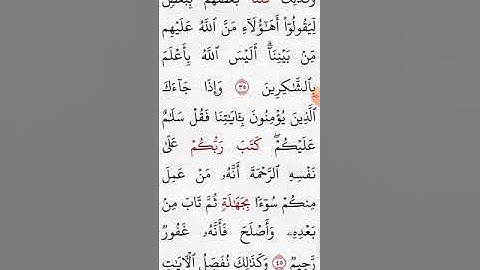 وَكَذَٰلِكَ فَتَنَّا بَعْضَهُم بِبَعْضٍ
لِّيَقُولُوٓا۟ أَهَٰٓؤُلَآءِ مَنَّ ٱللَّهُ عَلَيْهِم
مِّنۢ بَيْنِنَآ ۗ أَلَيْسَ ٱللَّهُ بِأَعْلَمَ
بِٱلشَّٰكِرِينَ ٣٥ وَإِذَا جَآءَكَ
ٱلَّذِينَ يُؤْمِنُونَ بِـَٔايَٰتِنَا فَقُلْ سَلَٰمٌ
عَلَيْكُمْ ۖ كَتَبَ رَبُّكُمْ عَلَىٰ
نَفْسِهِ ٱلرَّحْمَةَ أَنَّهُۥ مَنْ عَمِلَ
مِنكُمْ سُوٓءًۢا بِجَهَٰلَةٍ ثُمَّ تَابَ مِنۢ
بَعْدِهِۦ وَأَصْلَحَ فَأَنَّهُۥ غَفُورٌ
رَّحِيمٌ ٤٥ وَكَذَٰلِكَ نُفَصِّلُ ٱلْـَٔايَٰتِ